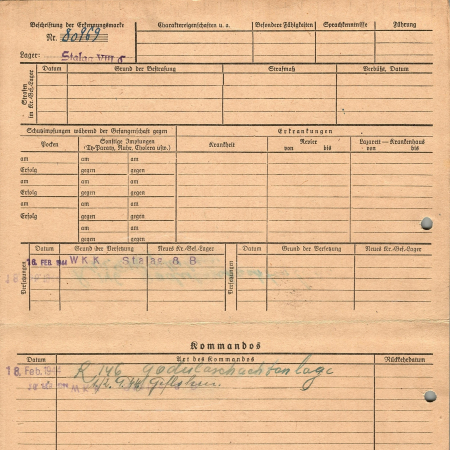 Beschriftung der Erkennungsmarke Charaktereigenschaften u. a. Besondere Fähigkeiten Sprachkenntnisse Führung
Nr. 80869
Lager: Stalag VIII
Strafen im Kr.-Gef.-Lager Datum Grund der Bestrafung Strafmaß Verbüßt, Datum
Schutzimpfungen während der Gefangenschaft gegen Erkrankungen
Pocken Sonstige Impfungen (Ty-Paraty, Ruhr, Cholera usw.) Krankheit Revier von bis Lazarett — Krankenhaus von bis
am am am
Erfolg gegen gegen
am am am
Erfolg gegen gegen
am am am
Erfolg gegen gegen
am am
gegen gegen
Versetzungen Datum Grund der Versetzung Neues Kr.-Gef.-Lager Versetzungen Datum Grund der Versetzung Neues Kr.-Gef.-Lager
18. FEB. 1944 WKK Stalag 8 B
Kommandos
Datum Art des Kommandos Rückkehrdatum
18. Feb. 1944 R 146